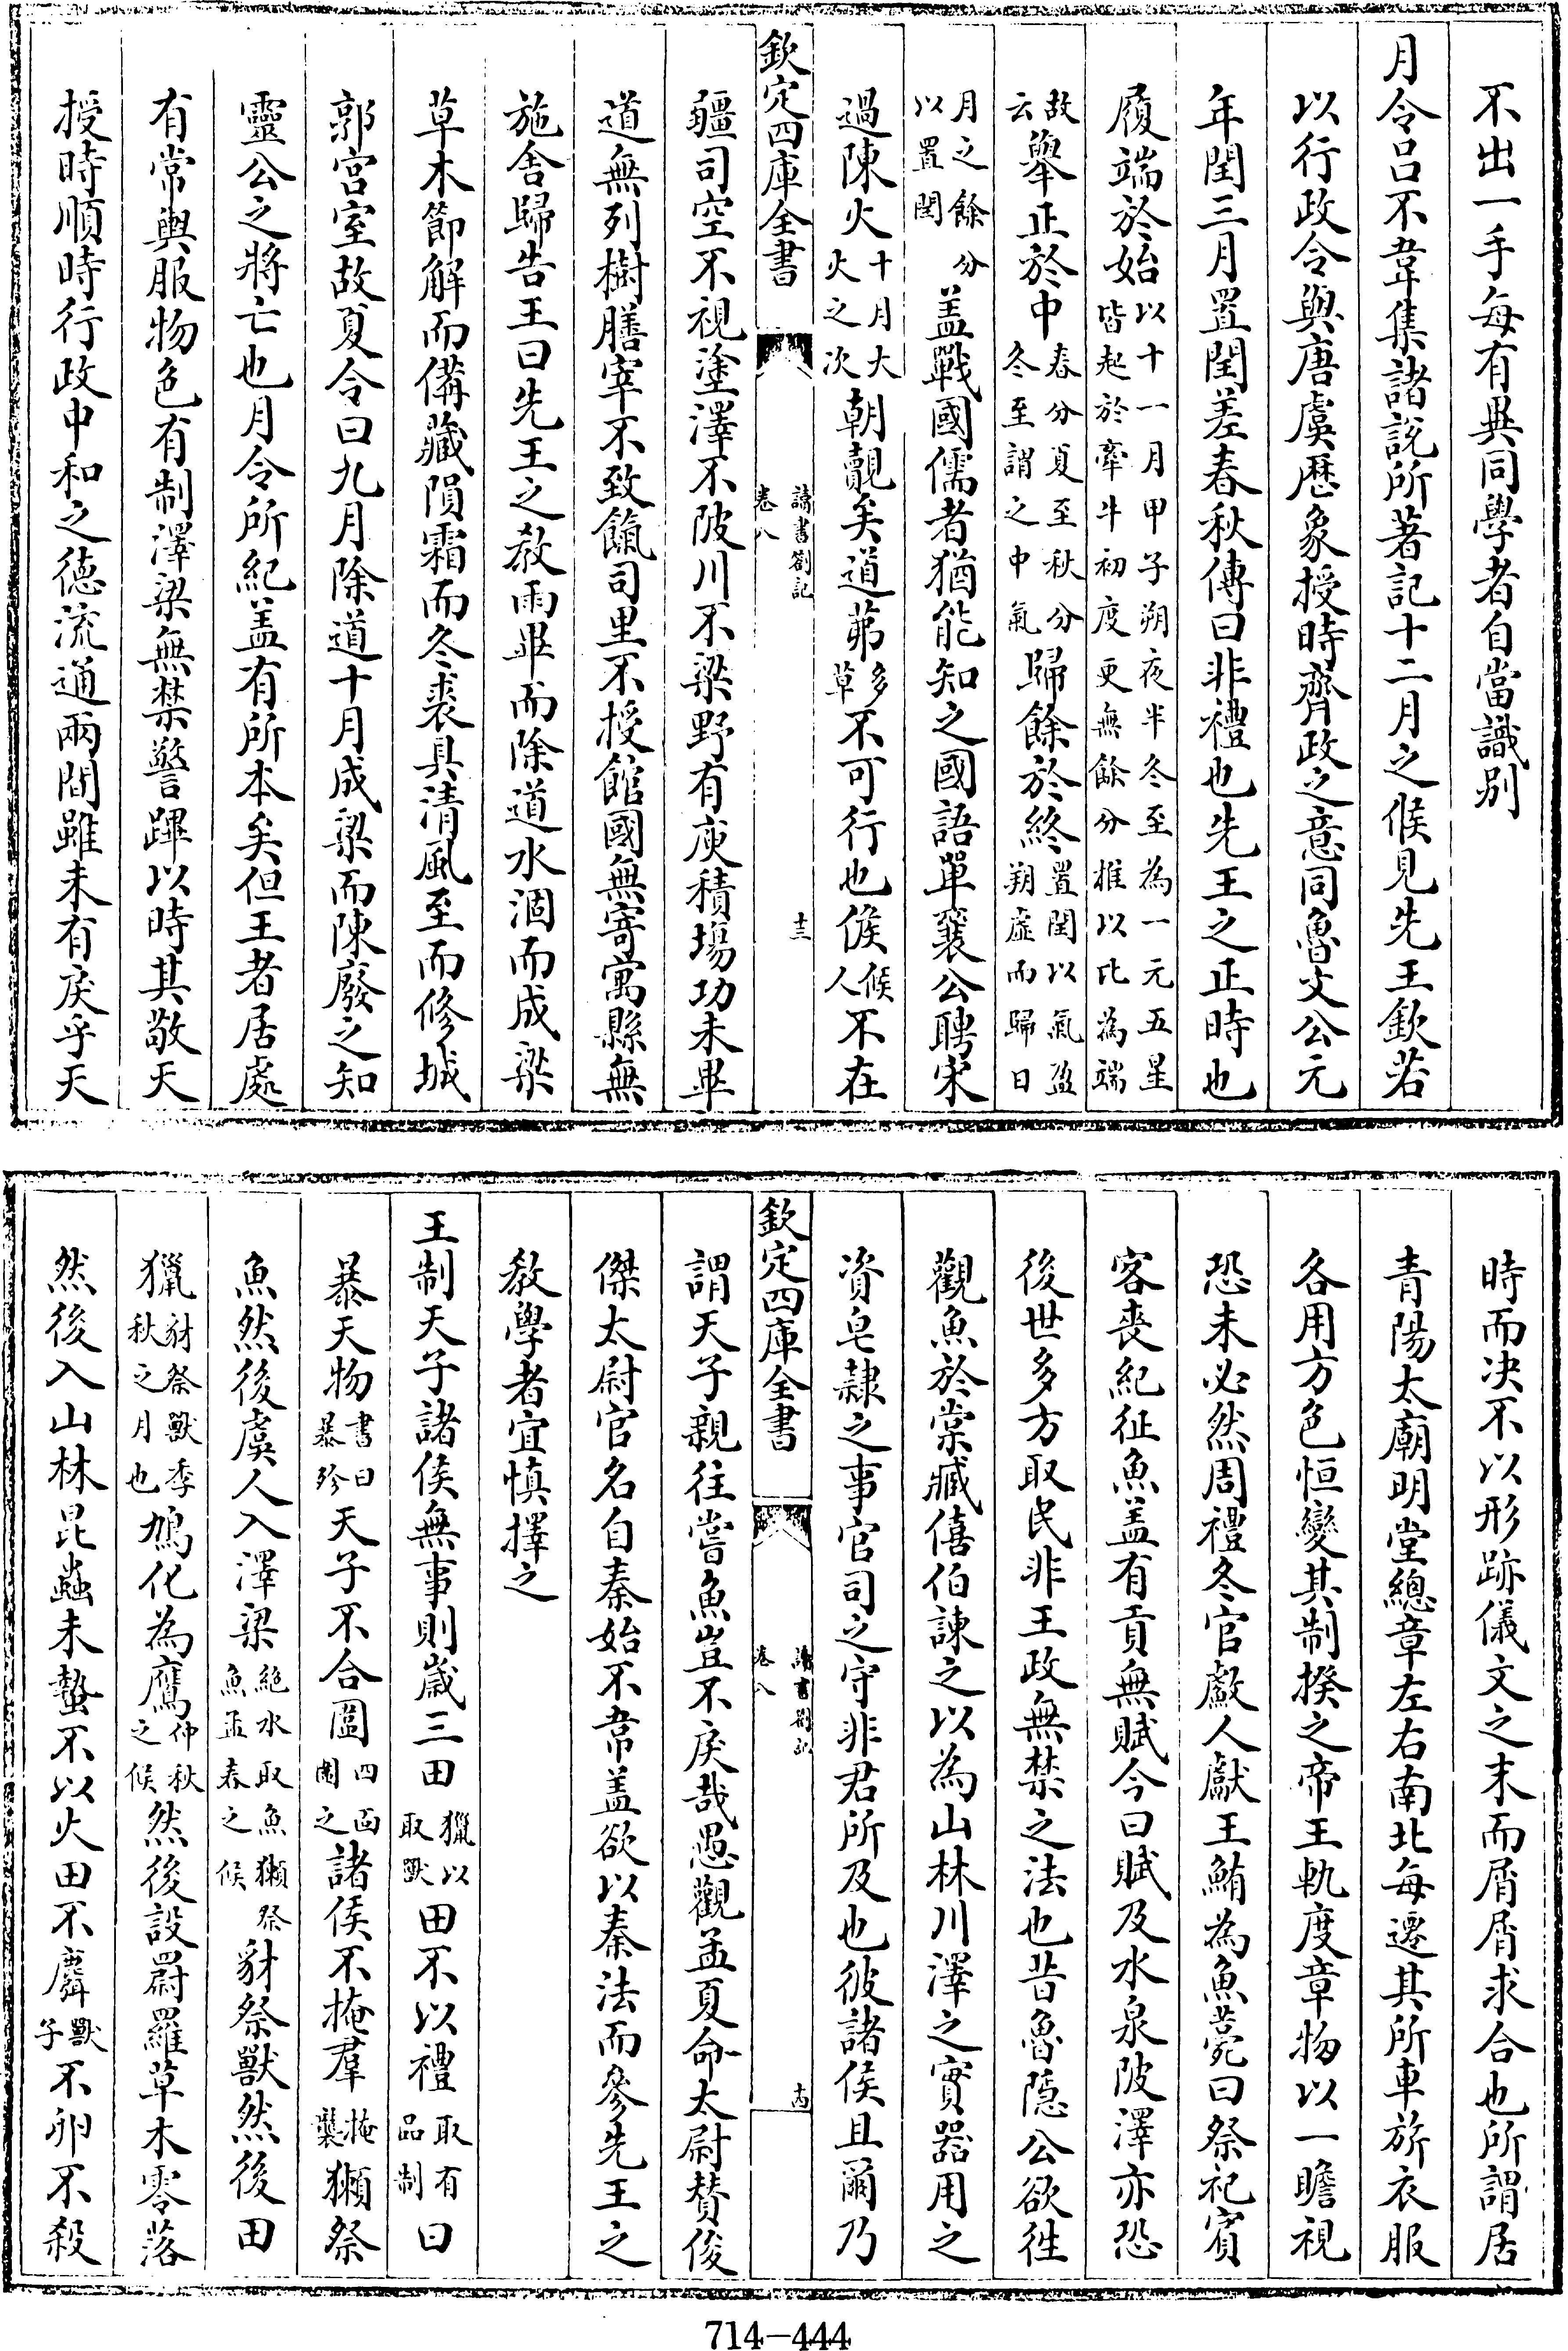 不出一手每有異同學者自當識别
月令吕不韋集諸說所著記十二月之候見先王欽若
以行政令與唐虞厯象授時齊政之意同魯文公元
年閏三月置閏差春秋傳曰非禮也先王之正時也
履端於始以十一月甲子朔夜半冬至為一元五星皆起於牽牛初度更無餘分推以比為端
故云舉正於中春分夏至秋分冬至謂之中氣歸餘於終置閏以氣盈朔虚而歸日
月之餘分以置閏盖戰國儒者猶能知之國語單襄公聘宋
過陳火十月大火之次朝覿矣道茀多草不可行也候候人不在
欽定四庫全書
讀書劄記
卷八
十三
疆司空不視塗澤不陂川不梁野有庾積塲功未畢
道無列樹膳宰不致餼司里不授館國無寄寓縣無
施舍歸告王曰先王之敎雨畢而除道水涸而成梁
草木節解而備藏隕霜而冬裘具清風至而修城
郭宫室故夏令曰九月除道十月成梁而陳廢之知
靈公之將亡也月令所紀盖有所本矣但王者居處
有常輿服物色有制澤梁無禁警蹕以時其敬天
授時順時行政中和之德流通兩間雖未有戾乎天
時而决不以形跡儀文之末而屑屑求合也所謂居
青陽太廟明堂總章左右南北每遷其所車旂衣服
各用方色恒變其制揆之帝王軌度章物以一瞻視
恐未必然周禮冬官䱷人獻王鮪為魚薧曰祭祀賓
客喪紀征魚盖有貢無賦今曰賦及水泉陂澤亦恐
後世多方取民非王政無禁之法也昔魯隠公欲徃
觀魚於棠臧僖伯諫之以為山林川澤之實器用之
資皂隸之事官司之守非君所及也彼諸侯且爾乃
欽定四庫全書
讀書劄記
卷八
十四
謂天子親往嘗魚豈不戾哉愚觀孟夏命太尉賛俊
傑太尉官名自秦始不常盖欲以秦法而參先王之
敎學者宜慎擇之
王制天子諸侯無事則歲三田獵以取獸田不以禮取有品制曰
暴天物書曰暴殄天子不合圍四面圍之諸侯不掩羣掩襲獺祭
魚然後虞人入澤梁絶水取魚獺祭魚孟春之候豺祭獸然後田
獵豺祭獸季秋之月也鳩化為鷹仲秋之候然後設罻羅草木零落
然後入山林昆蟲未蟄不以火田不麛獸子不卵不殺
714-444